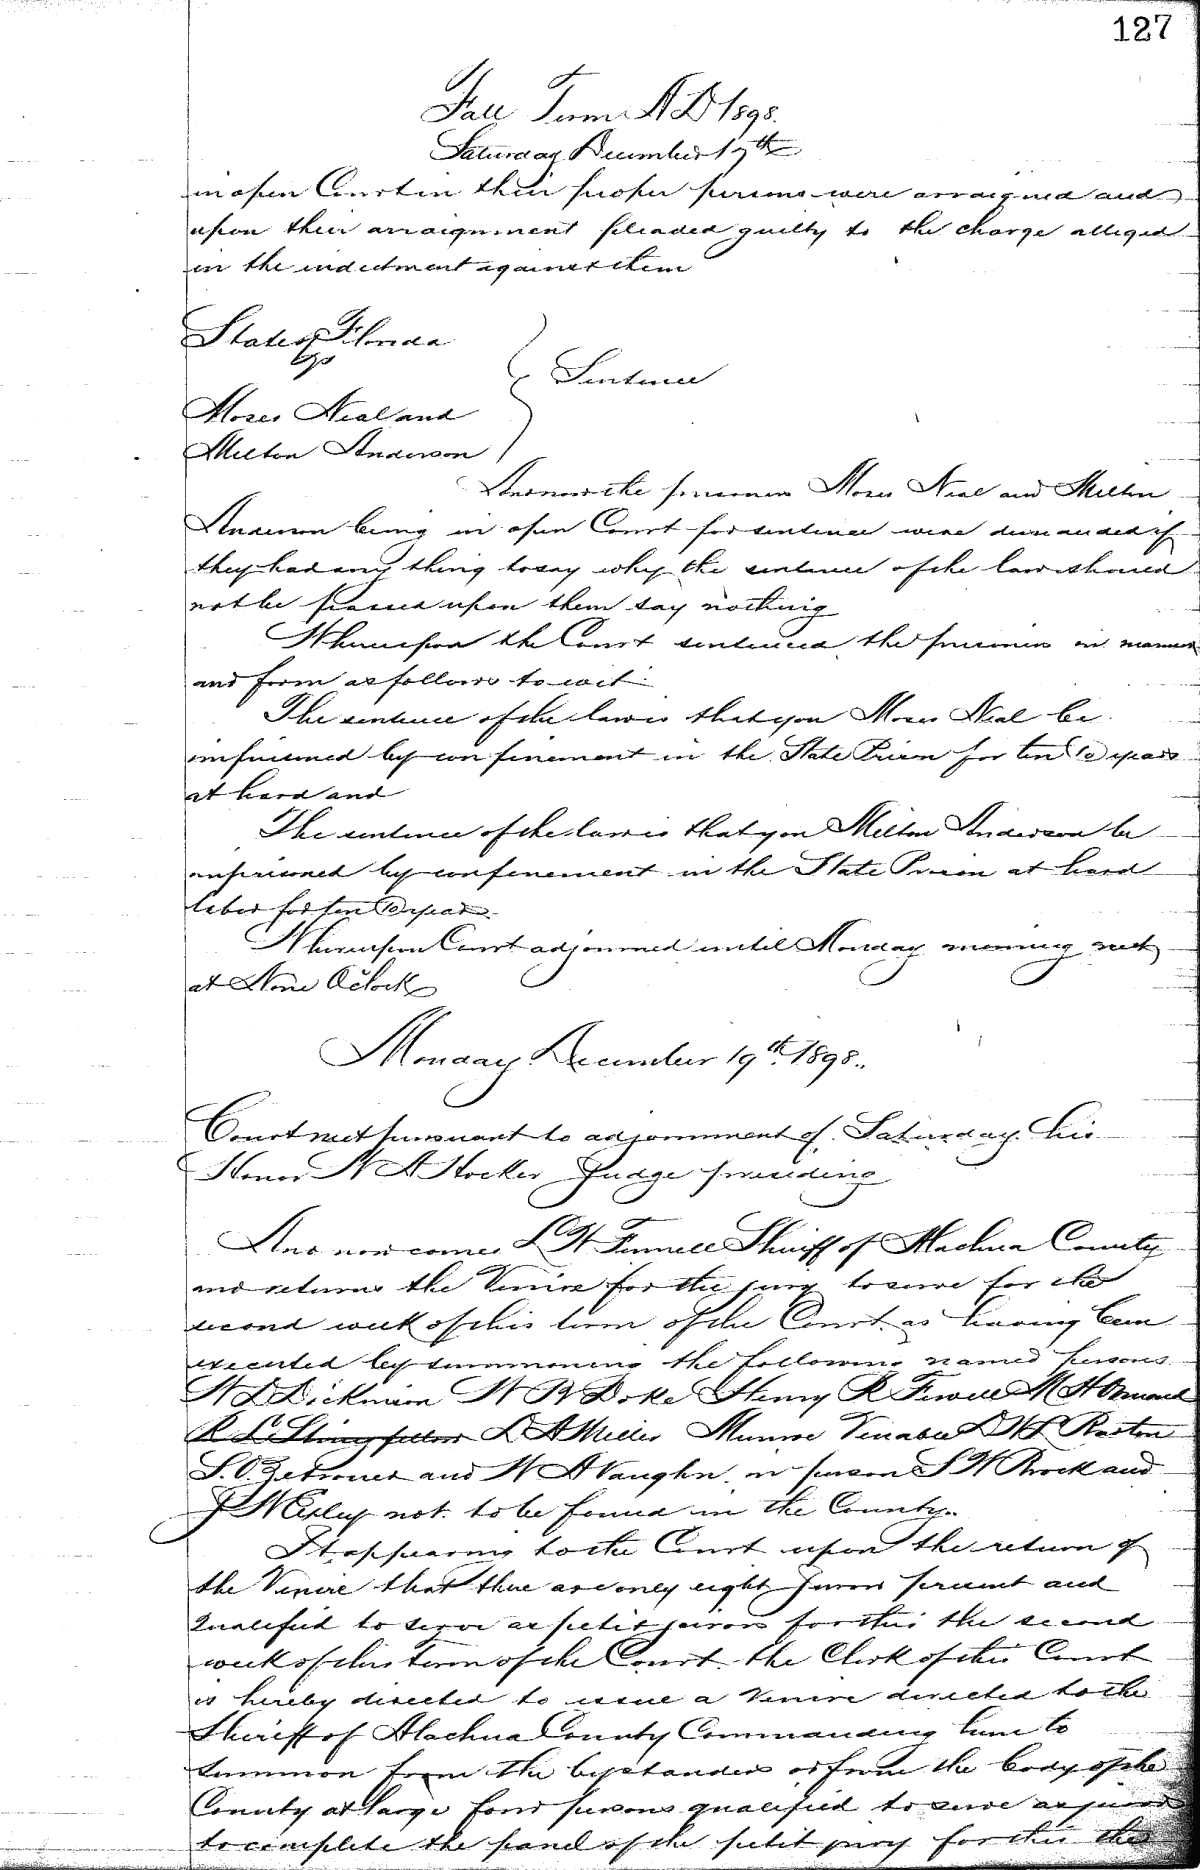 127
Fall Term A D 1898.
Saturday December 17th
in open Court in their proper persons were arraigned and
upon their arraignment pleaded guilty to the charge alleged
in the indictment against them
State of Florida
vs
Sentence
Moses Neal and
Milton Anderson
And now the prisoners Moses Neal and Milton
Anderson being in open Court for sentence were demanded if
they had any thing to say why the sentence of the law should
not be passed upon them say nothing
Whereupon the Court sentenced the prisoners in manner
and form as follows to wit
The sentence of the law is that you Moses Neal be
imprisoned by confinement in the State Prison for ten 10 years
at hard and
The sentence of the law is that you Milton Anderson be
imprisoned by confinement in the State Prison at hard
labor for ten 10 years.
Whereupon Court adjourned until Monday morning next
at Nine O'Clock
Monday December 19th 1898..
Court met pursuant to adjournment of Saturday. His
Honor W A Hocker Judge presiding
And now comes L W Fennell Sheriff of Alachua County
and returns the Venire for the jury to serve for the
second week of this term of the Court as having been
executed by summoning the following named persons
W D Dickinson W R Doke Henry R Fewell M H
R L Stringfellow L A Miller Munroe Venable
S. O. and W A Vaughn. in person S W Brock and
J not to be found in the County..
It appearing to the Court upon the return of
the Venire that there are only eight Jurors present and
Qualified to serve as petit jurors for this the second
week of this Term of the Court. the Clerk of this Court
is hereby directed to issue a Venire directed to the
Sheriff of Alachua County Commanding him to
summon from the bystanders or from the body of the
County at large four persons qualified to serve as jurors
to complete the panel of the petit jury for this the